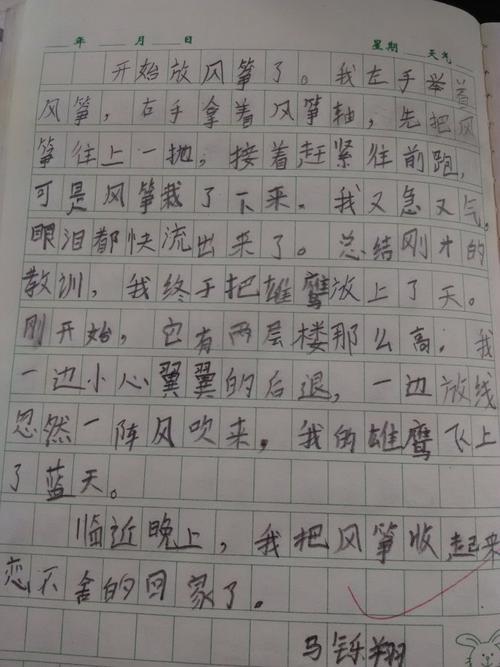 年 月 日 星期 天气
开始放风筝了。我左手举着
风筝，右手拿着风筝轴，先把风
筝往上一抛，接着，赶紧往前跑，
可是风筝栽了下来。我又急又气。
眼泪都快流出来了。总结刚才的
教训，我终于把雄鹰放上了天。
刚开始，它有两层楼那么高。我
一边小心翼翼的后退，一边放线
忽然一阵风吹来，我的雄鹰飞上
了蓝天。
临近晚上，我把风筝收起来
恋不舍的回家了。
马铄翔